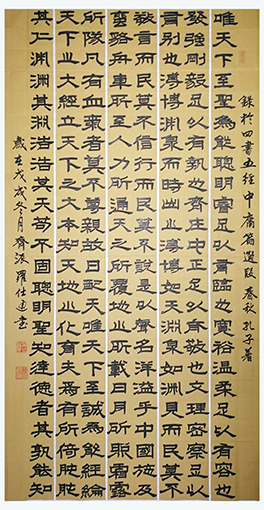 錄於四書五經中庸篇選段 春秋 孔子著
唯天下至聖為能聰明睿足以有臨也寬裕溫柔足以有容也
發強剛毅足以有執也齊莊中正足以有敬也文理密察足以
有別也溥博淵泉而時出之溥博如天淵泉如淵見而民莫不
敬言而民莫不信行而民莫不說是以聲名洋溢乎中國施及
蠻貊舟車所至人力所通天之所覆地之所載日月所照霜露
所隊凡有血氣者莫不尊親故曰配天唯天下至誠為能經綸
天下之大經立天下之大本知天地之化育夫焉有所倚肫肫
其仁淵淵其淵浩浩其天苟不固聰明聖知達德者其孰能知
歲在戊戌冬月 羅仕迪書